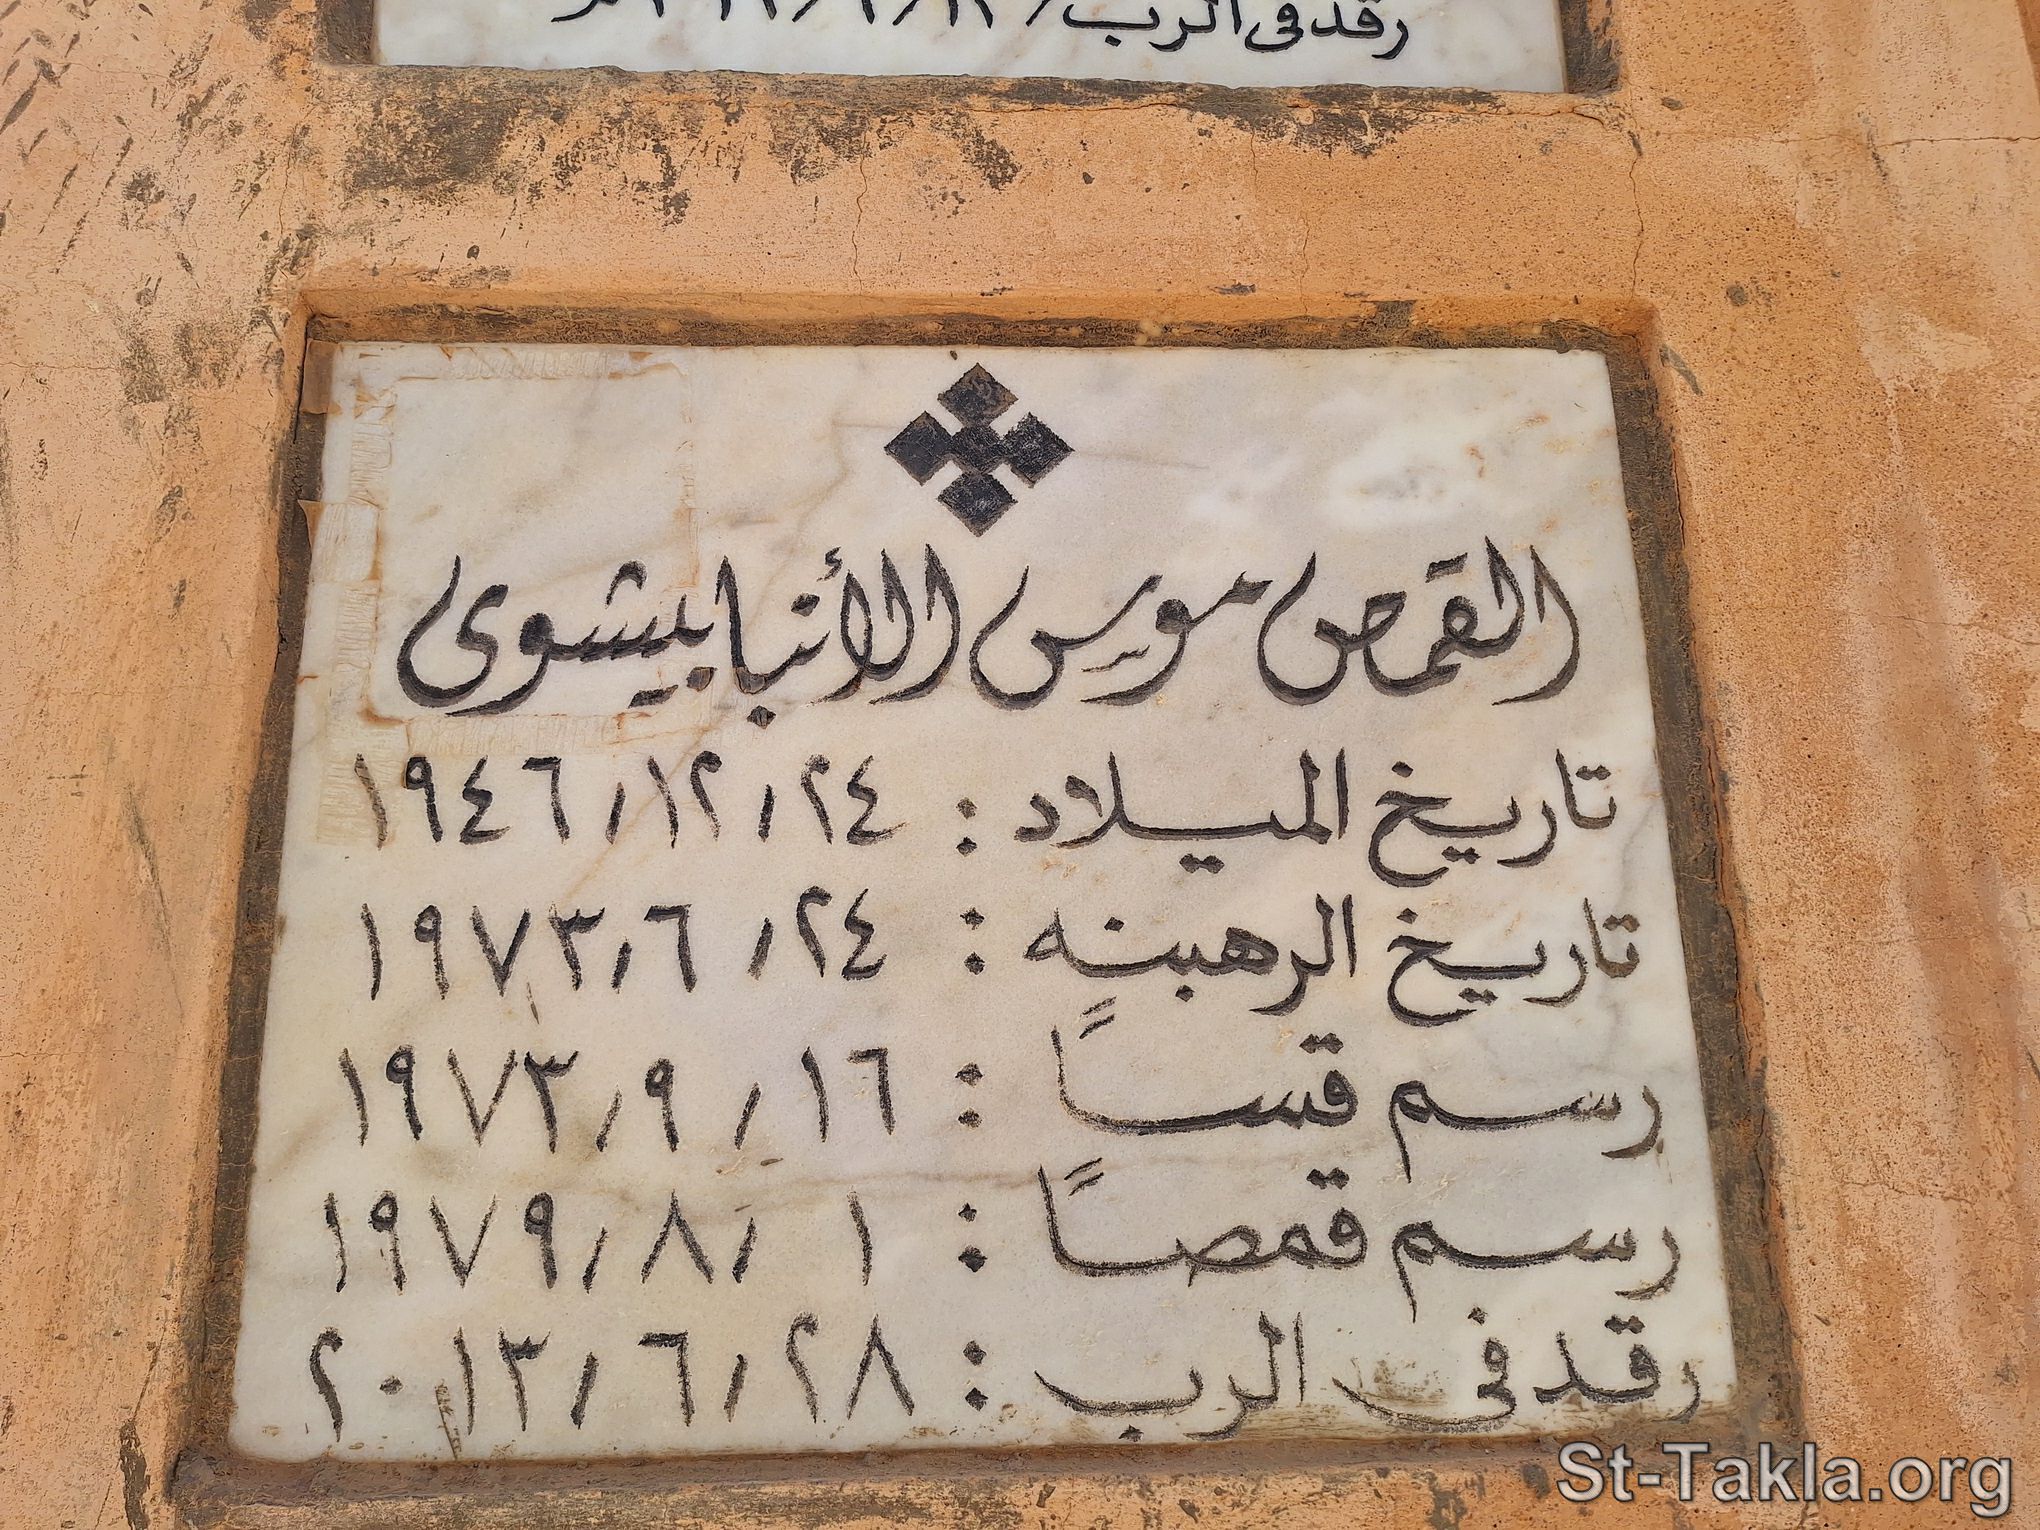 رقد في الرب
القمص موسى الأنبا بيشوى
تاريخ الميلاد : ٢٤/١٢/١٩٤٦
تاريخ الرهبنه : ٢٤/٦/١٩٧٣
رسم قساً : ١٦/٩/١٩٧٣
رسم قمصاً : ١/٨/١٩٧٩
رقد فى الرب : ٢٨/٦/٢٠١٣
St-Takla.org